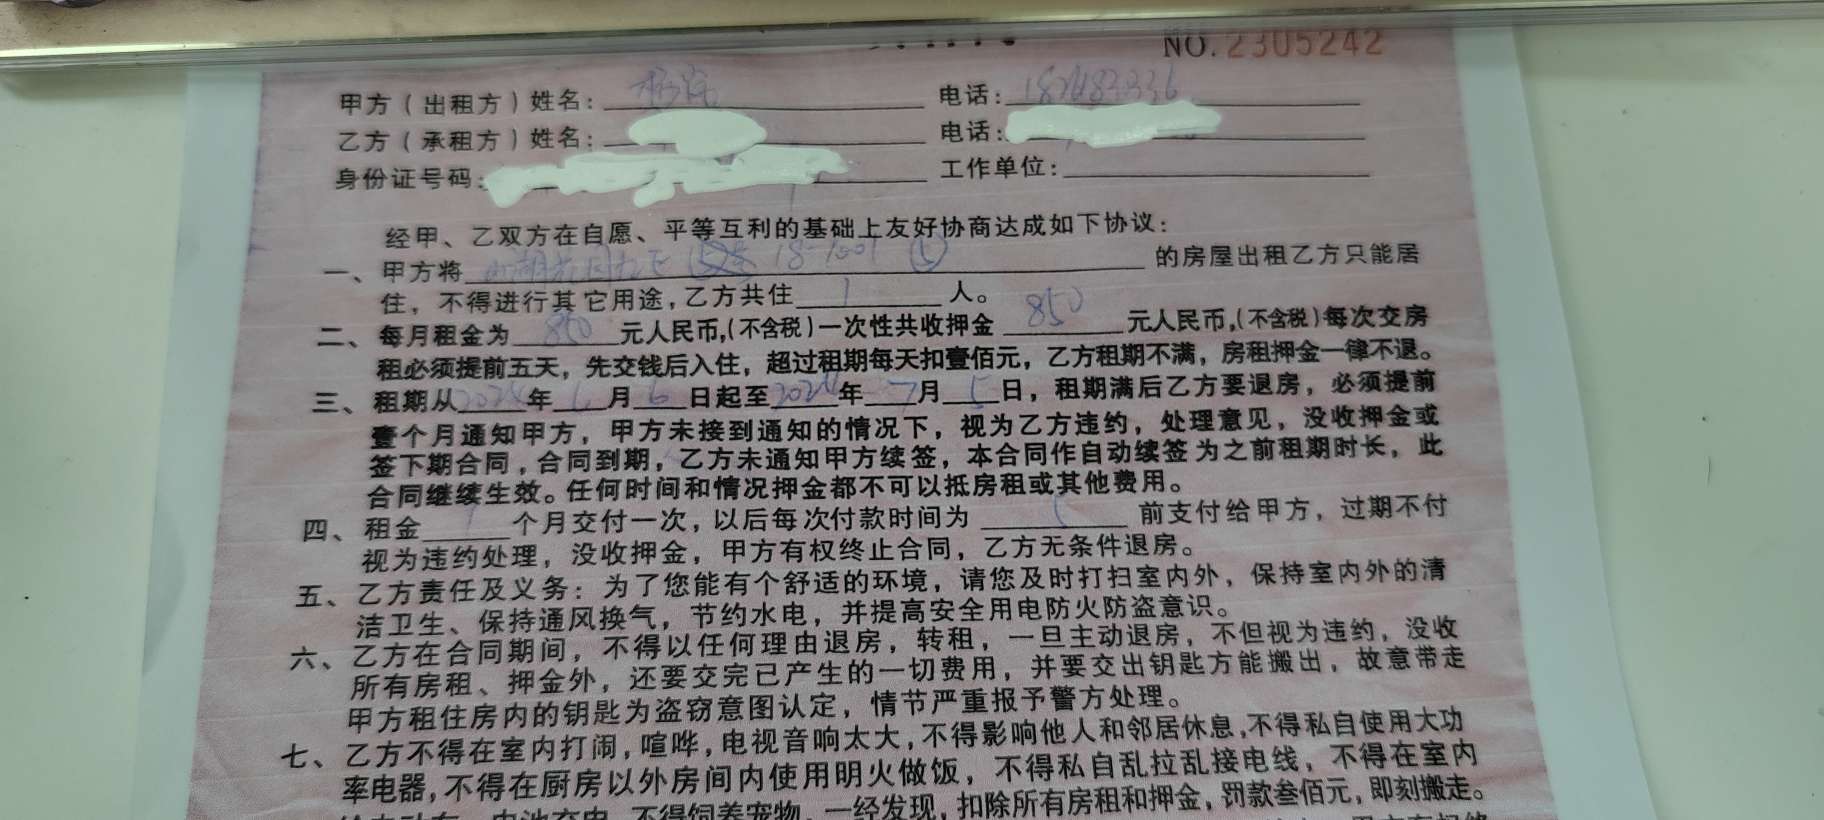 NO.2305242
甲方（出租方）姓名： 电话：
乙方（承租方）姓名： 电话：
身份证号码： 工作单位：
经甲、乙双方在自愿、平等互利的基础上友好协商达成如下协议：
一、甲方将 18-1501 ⑤ 的房屋出租乙方只能居
住，不得进行其它用途，乙方共住 1 人。
二、每月租金为 850 元人民币，（不含税）一次性共收押金 850 元人民币，（不含税）每次交房
租必须提前五天，先交钱后入住，超过租期每天扣壹佰元，乙方租期不满，房租押金一律不退。
三、租期从2024年 6 月 6 日起至2024年 7月 5 日，租期满后乙方要退房，必须提前
壹个月通知甲方，甲方未接到通知的情况下，视为乙方违约，处理意见，没收押金或
签下期合同，合同到期，乙方未通知甲方续签，本合同作自动续签为之前租期时长，此
合同继续生效。任何时间和情况押金都不可以抵房租或其他费用。
四、租金 1 个月交付一次，以后每次付款时间为 5 前支付给甲方，过期不付
视为违约处理，没收押金，甲方有权终止合同，乙方无条件退房。
五、乙方责任及义务：为了您能有个舒适的环境，请您及时打扫室内外，保持室内外的清
洁卫生、保持通风换气，节约水电，并提高安全用电防火防盗意识。
六、乙方在合同期间，不得以任何理由退房，转租，一旦主动退房，不但视为违约，没收
所有房租、押金外，还要交完已产生的一切费用，并要交出钥匙方能搬出，故意带走
甲方租住房内的钥匙为盗窃意图认定，情节严重报予警方处理。
七、乙方不得在室内打闹，喧哗，电视音响太大，不得影响他人和邻居休息，不得私自使用大功
率电器，不得在厨房以外房间内使用明火做饭，不得私自乱拉乱接电线，不得在室内
不得饲养宠物，一经发现，扣除所有房租和押金，罚款叁佰元，即刻搬走。